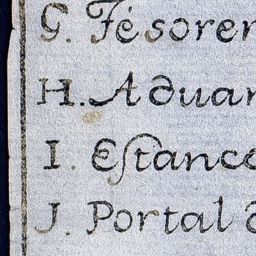 G. Tésorer
H. Aduan
I. Estance
J. Portal d